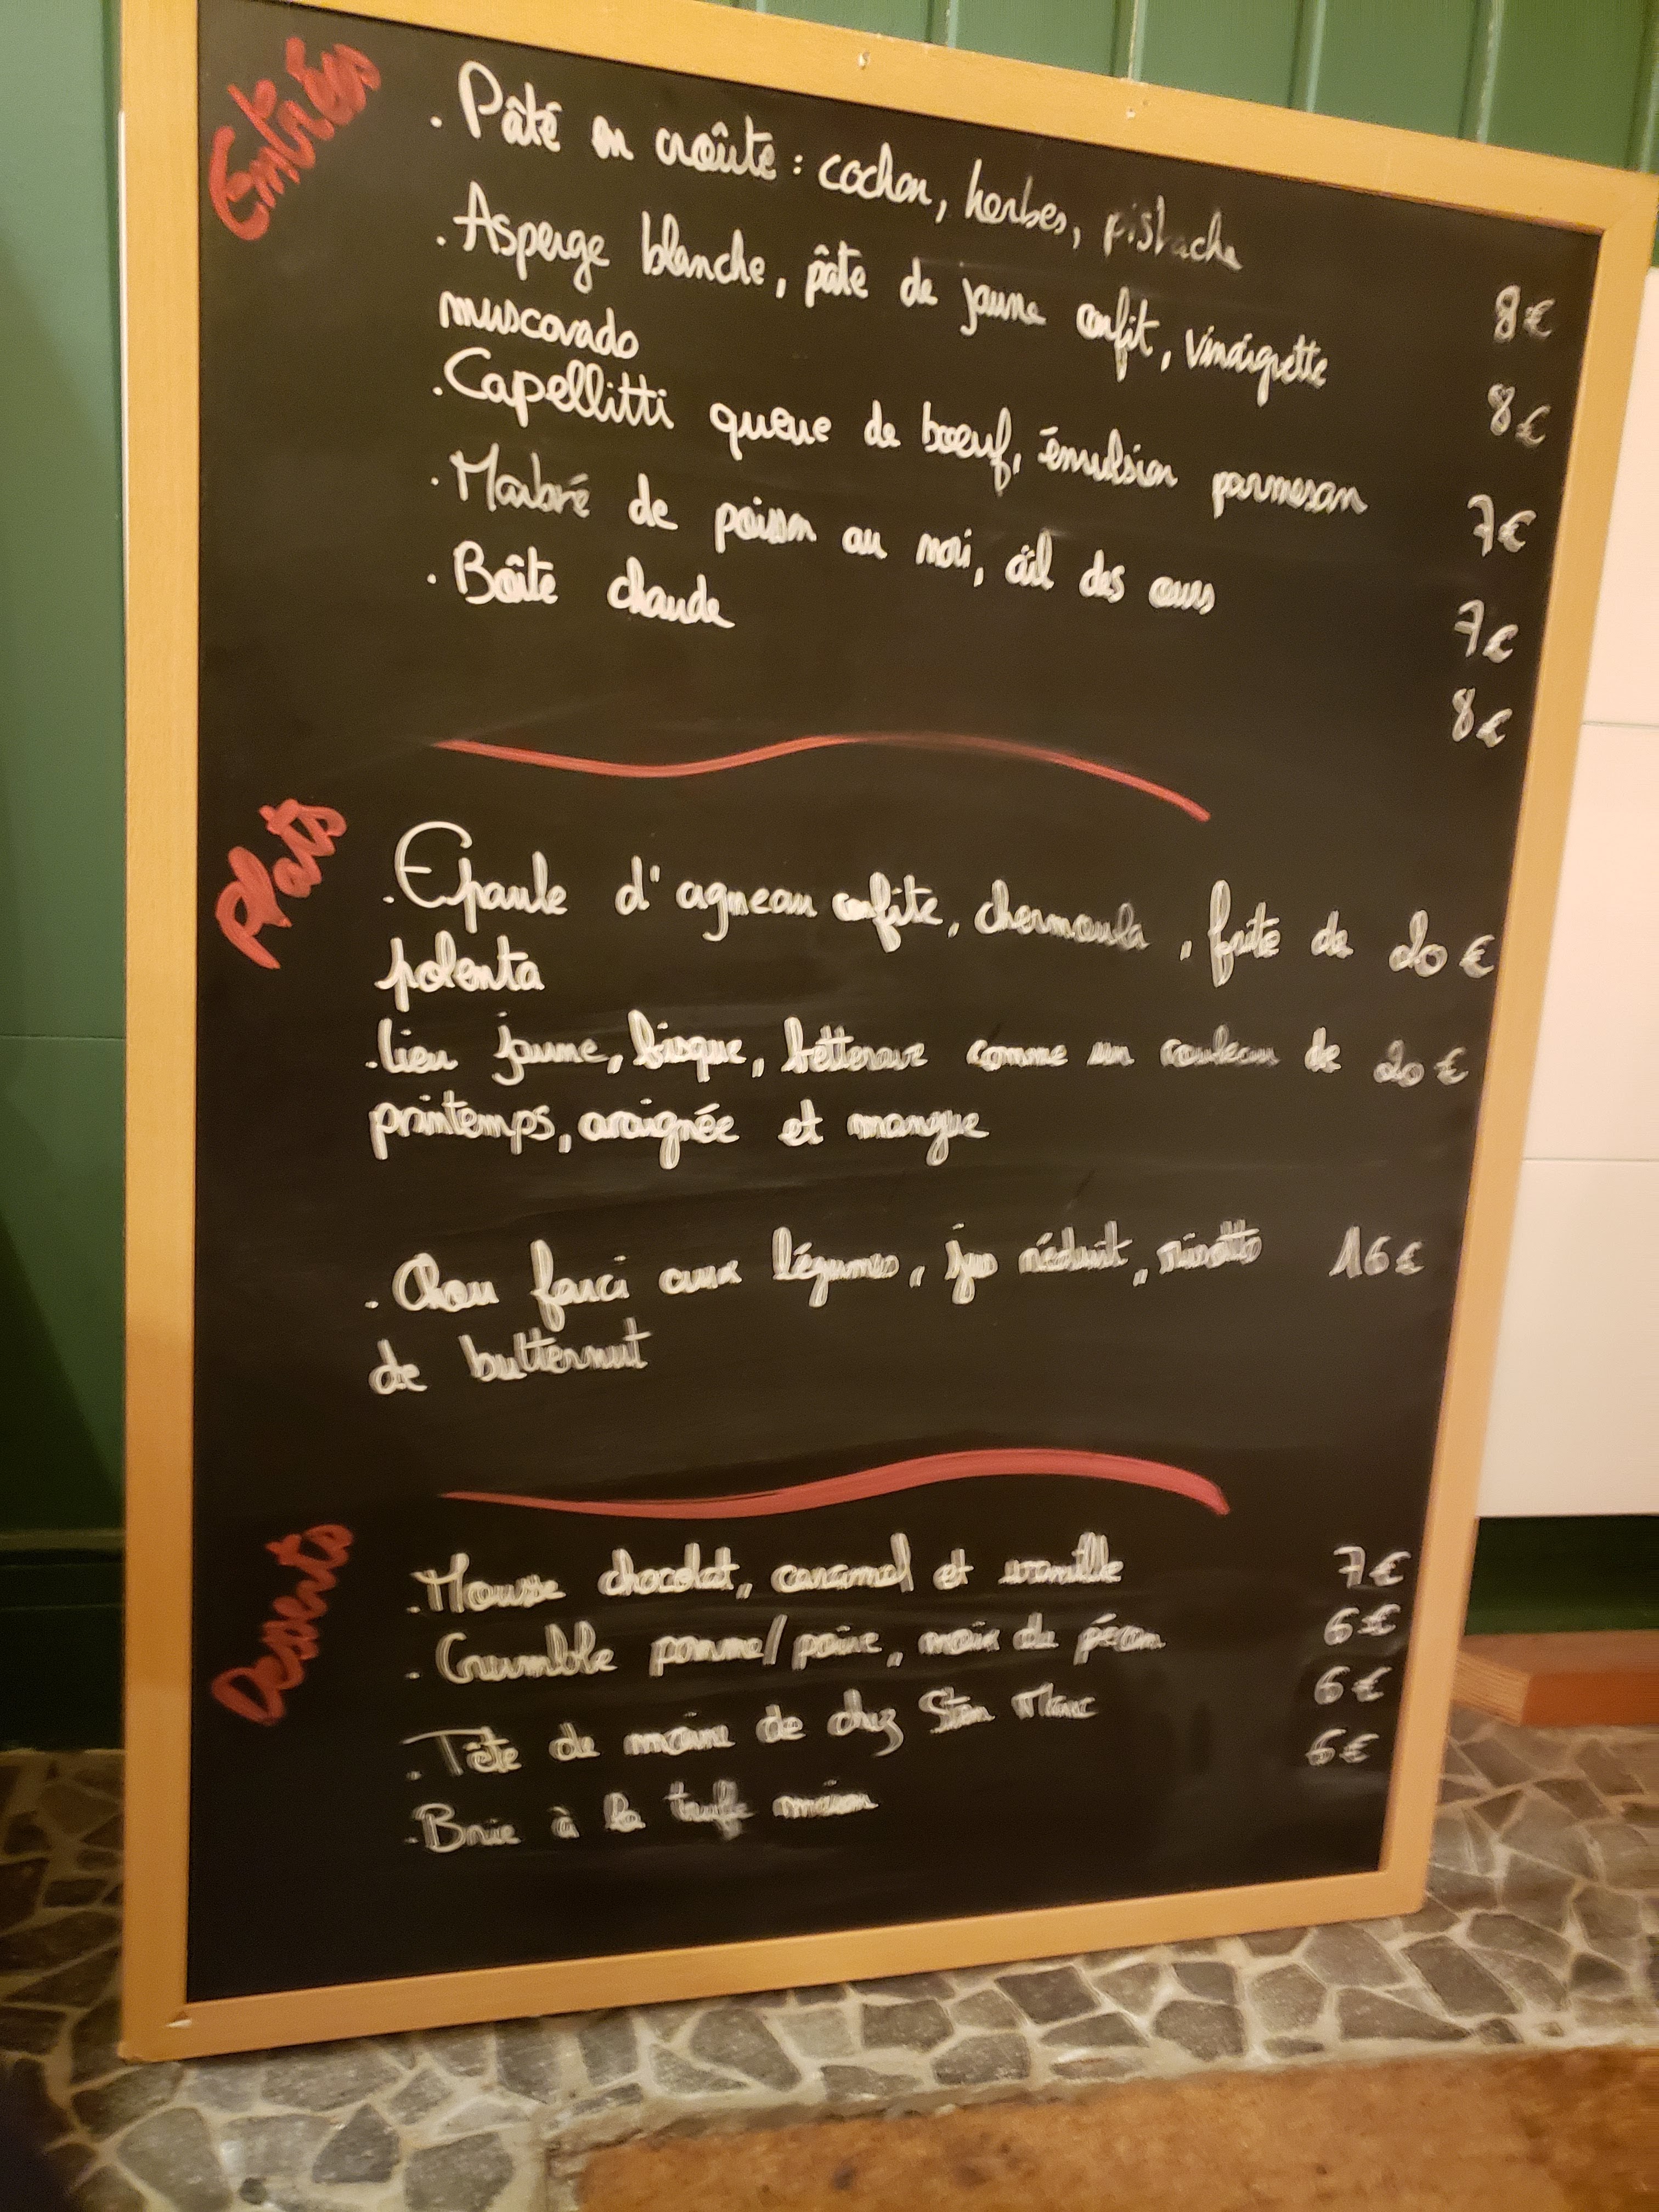 Entrées
. Pâté en croûte : cochon, herbes, pistache 8€
. Asperge blanche, pâte de jaune confit, vinaigrette 8€
muscovado
. Capellitti queue de bœuf, émulsion parmesan 7€
. Marbré de poisson au nori, ail des ours 7€
. Boîte chaude 8€
Plats
. Epaule d'agneau confite, chermoula, frite de 20€
polenta
. Lieu jaune, bisque, betterave comme un rouleau de 20€
printemps, araignée et mangue
. Chou farci aux légumes, jus réduit, risotto 16€
de butternut
Desserts
. Mousse chocolat, caramel et vanille 7€
. Crumble pomme/poire, noix de pécan 6€
. Tête de moine de chez Marc 6€
. Brie à la truffe maison 6€